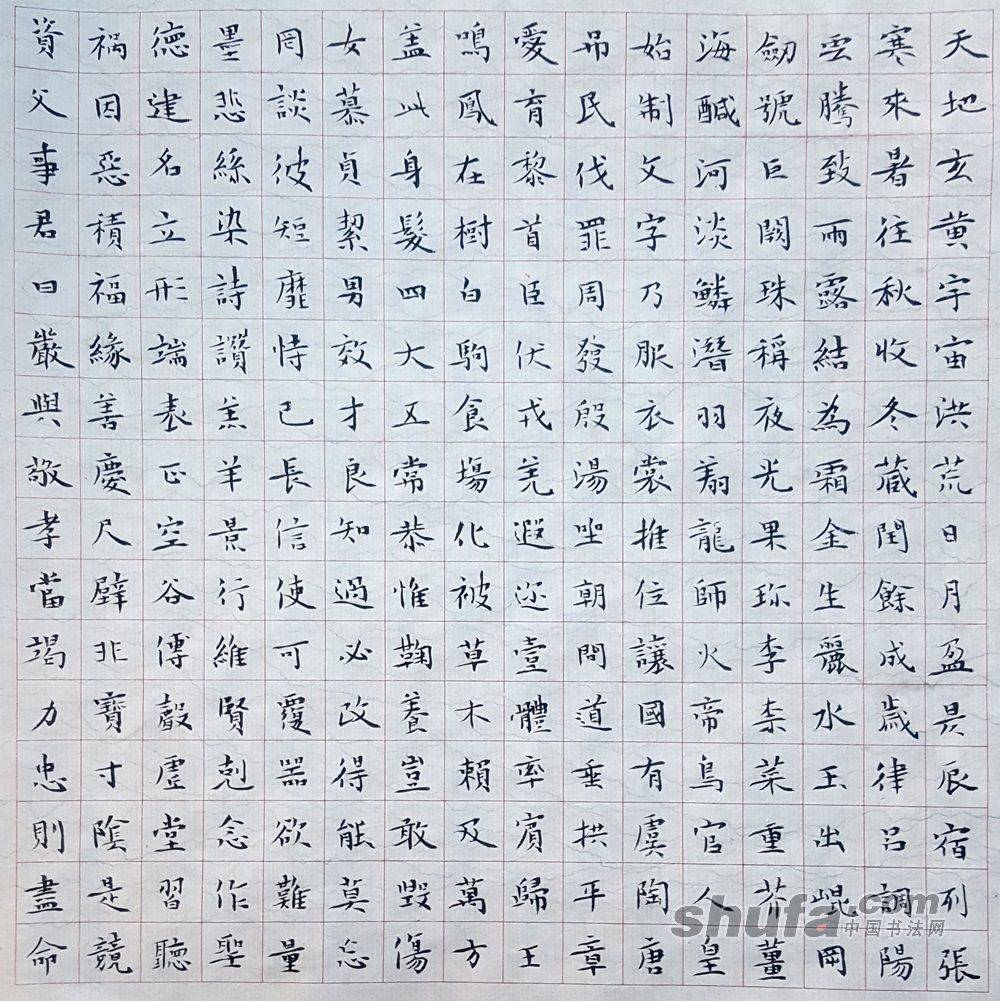 天地玄黄宇宙洪荒日月盈昃辰宿列張
寒來暑往秋收冬蔵閏餘成歲律吕調陽
雲騰致雨露結為霜金生麗水玉出崐岡
劒號巨闕珠稱夜光果珎李柰菜重芥薑
海醎河淡鱗潛羽翔龍師火帝鳥官人皇
始制文字乃服衣裳推位讓國有虞陶唐
吊民伐罪周發殷湯坐朝問道垂拱平章
愛育黎首臣伏戎羌遐迩壹體率賓歸王
鳴鳳在樹白駒食場化被草木賴及萬方
盖此身髮四大五常恭惟鞠養豈敢毀傷
女慕貞絜男效才良知過必改得能莫忘
罔談彼短靡恃己長信使可覆器欲難量
墨悲絲染詩讚羔羊景行維賢剋念作聖
德建名立形端表正空谷傳聲虛堂習聽
禍因惡積福緣善慶尺璧非寶寸陰是競
資父事君曰嚴與敬孝當竭力忠則盡命
shufa.com
中国书法网